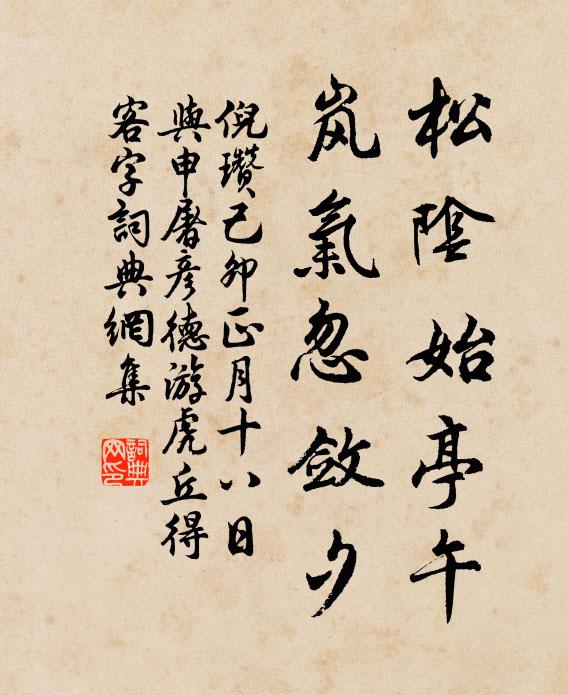 松陰始亭午
岚氣忽斂夕
倪瓚己卯正月十八日
與申屠彦德游虎丘得
客字詞典網集
詞典网印